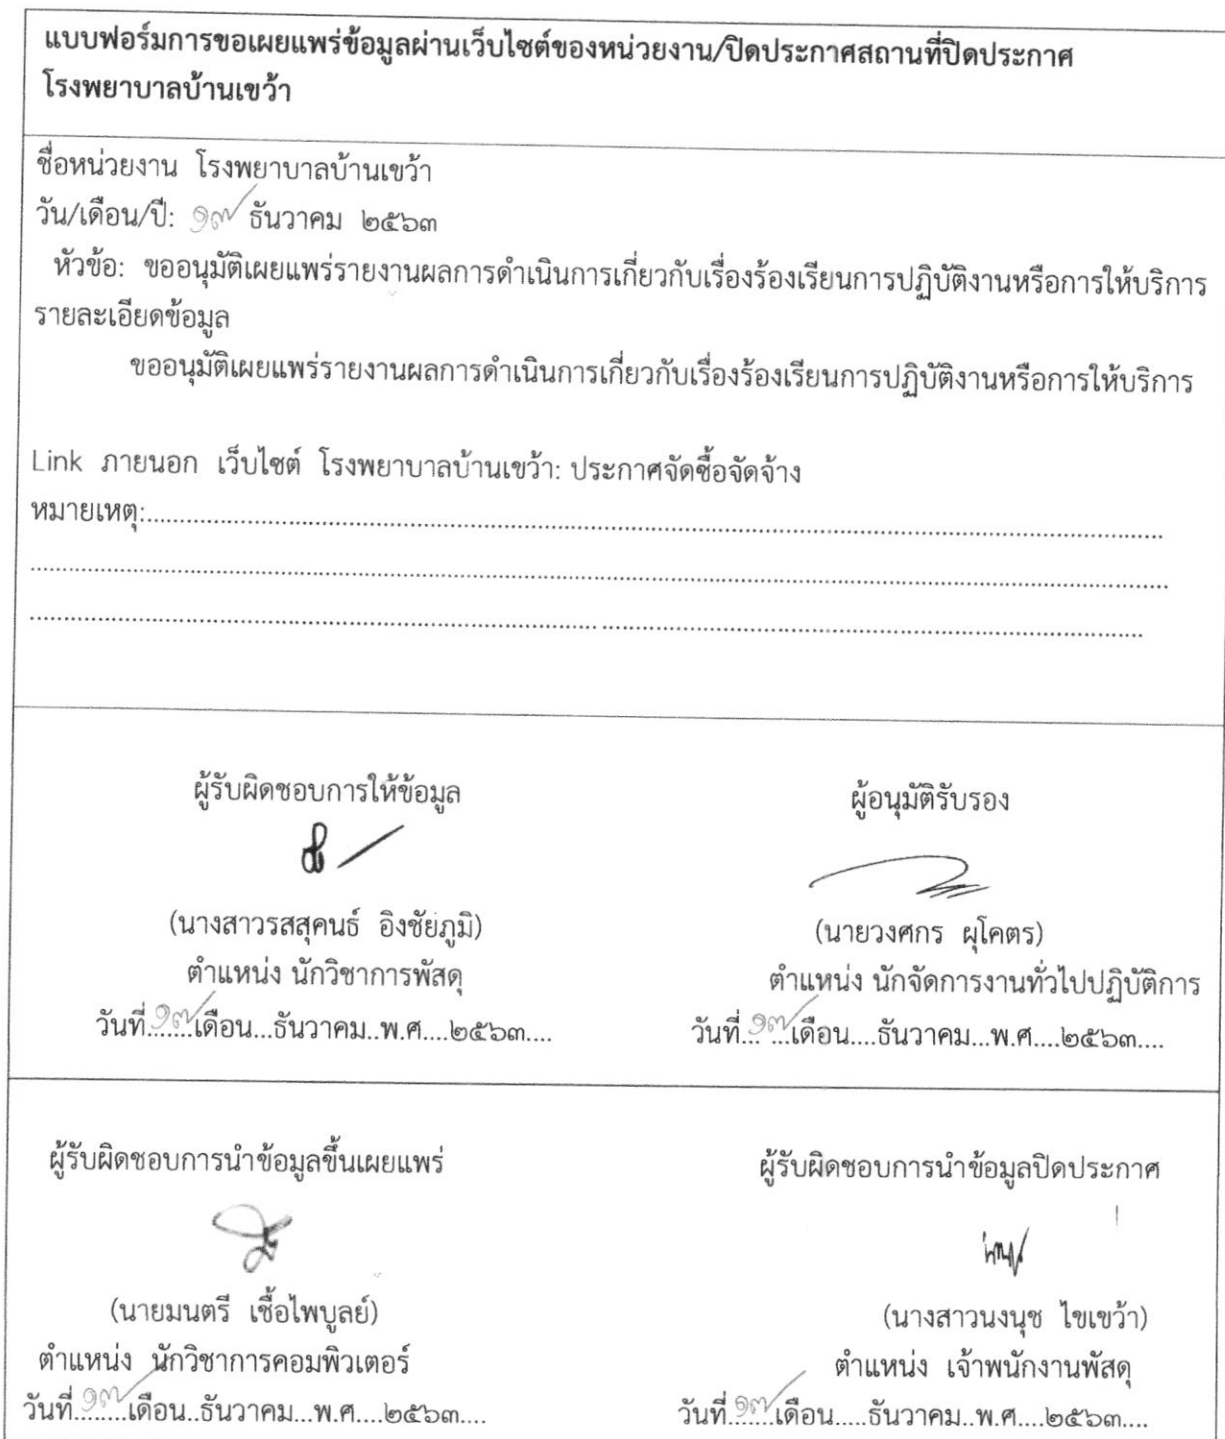 แบบฟอร์มการขอเผยแพร่ข้อมูลผ่านเว็บไซต์ของหน่วยงาน/ปิดประกาศสถานที่ปิดประกาศ
โรงพยาบาลบ้านเขว้า
ชื่อหน่วยงาน โรงพยาบาลบ้านเขว้า
วัน/เดือน/ปี: ๑๗ ธันวาคม ๒๕๖๓
หัวข้อ: ขออนุมัติเผยแพร่รายงานผลการดำเนินการเกี่ยวกับเรื่องร้องเรียนการปฏิบัติงานหรือการให้บริการ
รายละเอียดข้อมูล
ขออนุมัติเผยแพร่รายงานผลการดำเนินการเกี่ยวกับเรื่องร้องเรียนการปฏิบัติงานหรือการให้บริการ
Link ภายนอก เว็บไซต์ โรงพยาบาลบ้านเขว้า: ประกาศจัดซื้อจัดจ้าง
หมายเหตุ:
ผู้รับผิดชอบการให้ข้อมูล
(นางสาวรสสุคนธ์ อิงชัยภูมิ)
ตำแหน่ง นักวิชาการพัสดุ
วันที่..๑๗..เดือน...ธันวาคม..พ.ศ....๒๕๖๓....
ผู้อนุมัติรับรอง
(นายวงศกร ผุโคตร)
ตำแหน่ง นักจัดการงานทั่วไปปฏิบัติการ
วันที่..๑๗..เดือน....ธันวาคม...พ.ศ....๒๕๖๓....
ผู้รับผิดชอบการนำข้อมูลขึ้นเผยแพร่
(นายมนตรี เชื้อไพบูลย์)
ตำแหน่ง นักวิชาการคอมพิวเตอร์
วันที่..๑๗..เดือน..ธันวาคม...พ.ศ....๒๕๖๓....
ผู้รับผิดชอบการนำข้อมูลปิดประกาศ
(นางสาวนงนุช ไขเขว้า)
ตำแหน่ง เจ้าพนักงานพัสดุ
วันที่..๑๗..เดือน.....ธันวาคม..พ.ศ....๒๕๖๓....